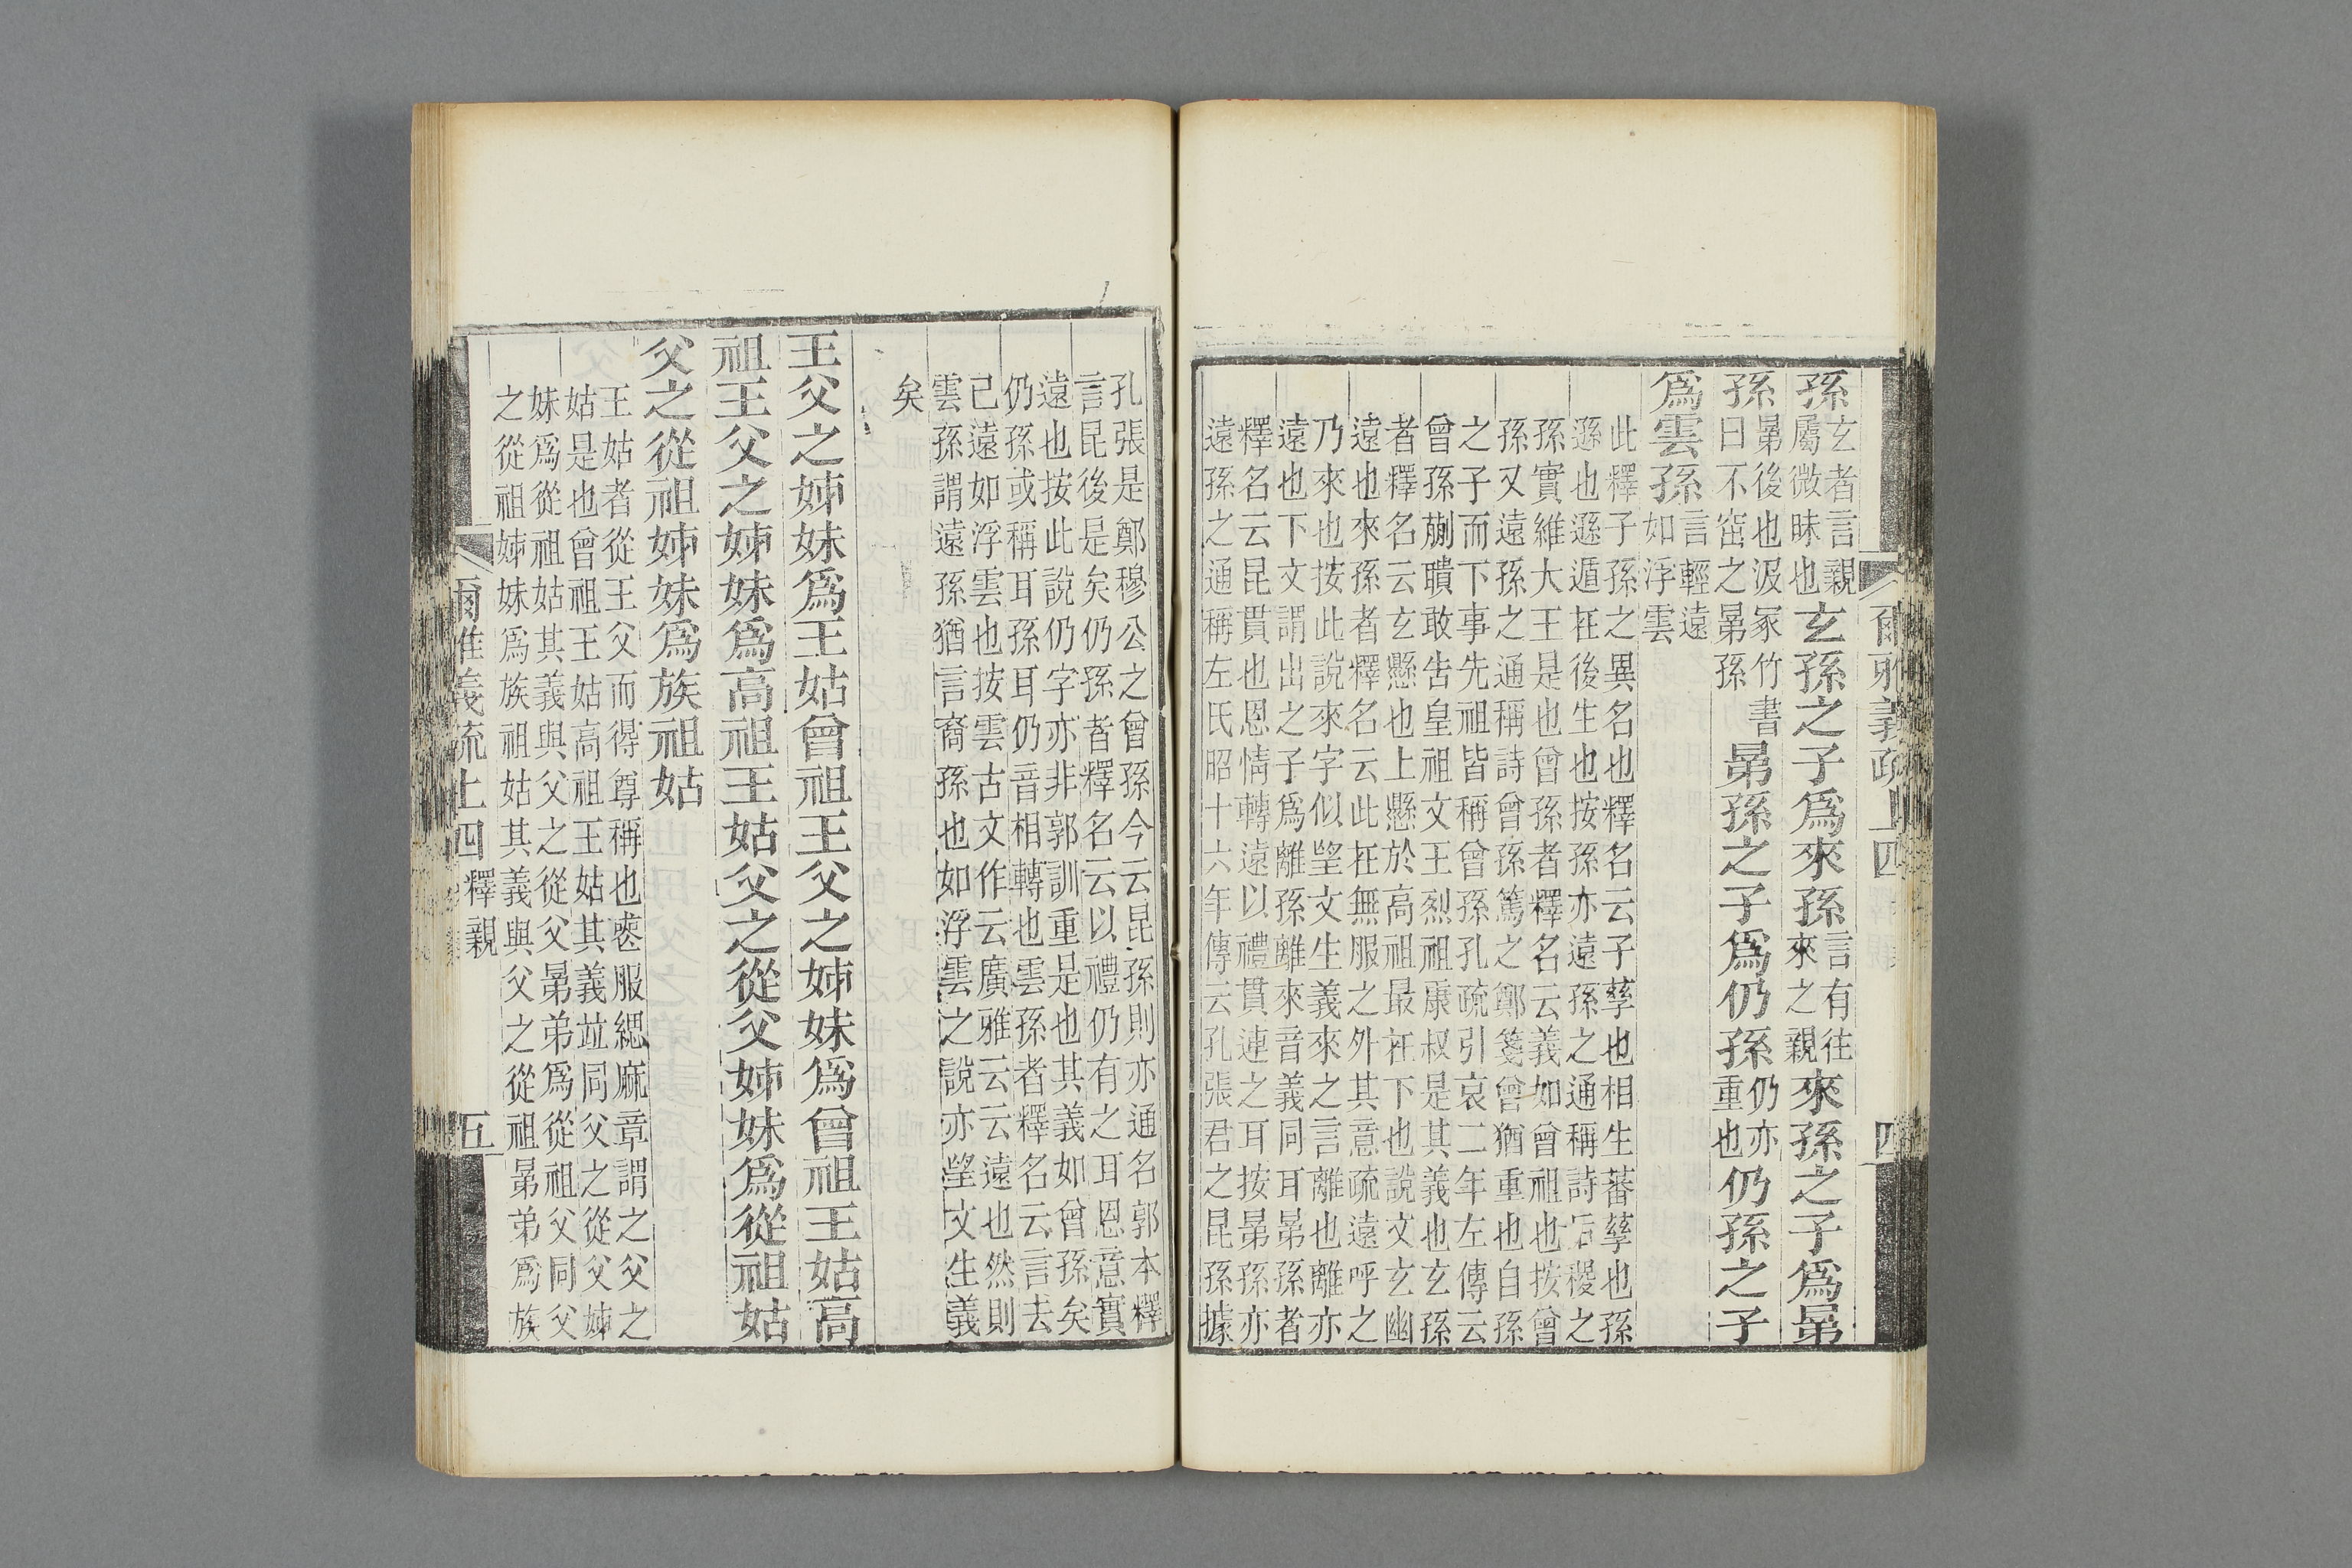 爾雅義疏上四
四
孫玄者言親屬微昧也玄孫之子爲來孫言有往來之親來孫之子爲晜
孫晜後也汲冢竹書曰不窋之晜孫晜孫之子爲仍孫仍亦重也仍孫之子
爲雲孫言輕遠如浮雲
此釋子孫之異名也釋名云子孳也相生蕃孳也孫
遜也遜遁在後生也按孫亦遠孫之通稱詩后稷之
孫實維大王是也曾孫者釋名云義如曾祖也按曾
孫又遠孫之通稱詩曾孫篤之鄭箋曾猶重也自孫
之子而下事先祖皆稱曾孫孔疏引哀二年左傳云
曾孫蒯聵敢告皇祖文王烈祖康叔是其義也玄孫
者釋名云玄懸也上懸於高祖最在下也說文玄幽
遠也來孫者釋名云此在無服之外其意疏遠呼之
乃來也按此說來字似望文生義來之言離也離亦
遠也下文謂出之子爲離孫離來音義同耳晜孫者
釋名云昆貫也恩情轉遠以禮貫連之耳按晜孫亦
遠孫之通稱左氏昭十六年傳云孔張君之昆孫據
孔張是鄭穆公之曾孫今云昆孫則亦通名郭本釋
言昆後是矣仍孫者釋名云以禮仍有之耳恩意實
遠也按此說仍字亦非郭訓重是也其義如曾孫矣
仍孫或稱耳孫耳仍音相轉也雲孫者釋名云言去
已遠如浮雲也按雲古文作云廣雅云云遠也然則
雲孫謂遠孫猶言裔孫也如浮雲之說亦望文生義
矣
王父之姊妹爲王姑曾祖王父之姊妹爲曾祖王姑高
祖王父之姊妹爲高祖王姑父之從父姊妹爲從祖姑
父之從祖姊妹爲族祖姑
王姑者從王父而得尊稱也喪服緦麻章謂之父之
姑是也曾祖王姑高祖王姑其義竝同父之從父姊
妹爲從祖姑其義與父之從父晜弟爲從祖父同父
之從祖姊妹爲族祖姑其義與父之從祖晜弟爲族
爾雅義疏上四 釋親
五